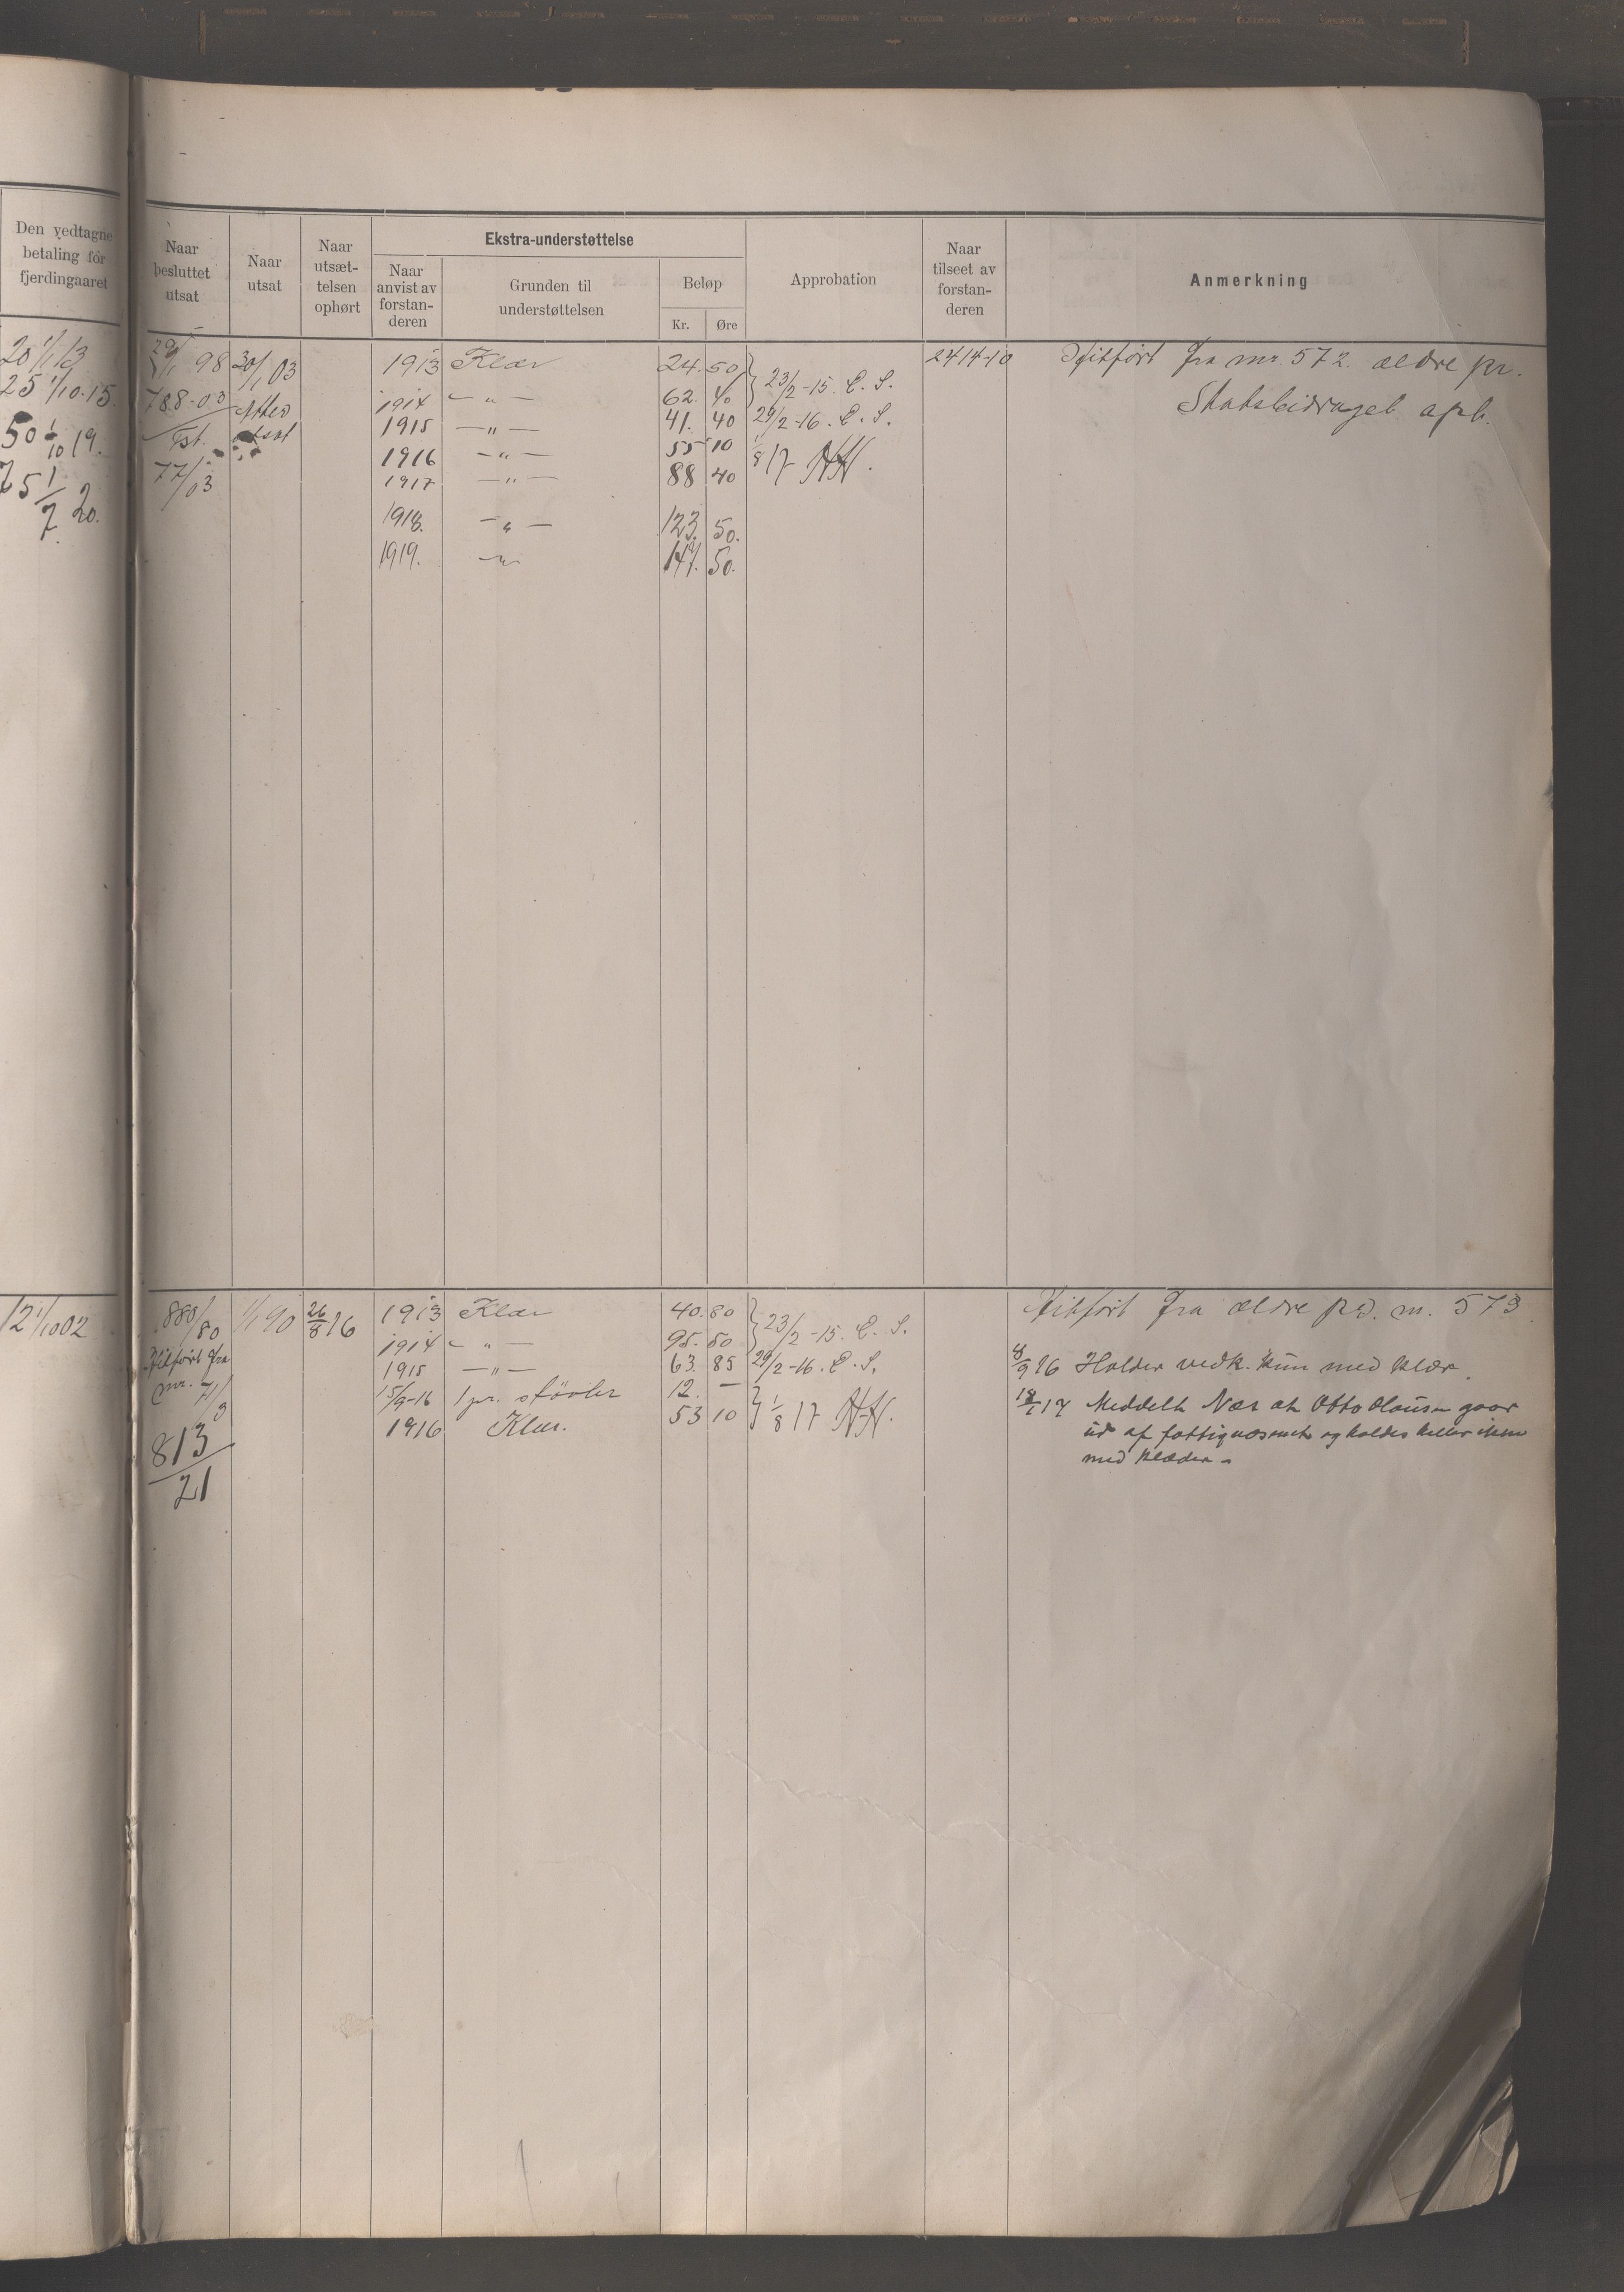 Den vedtagne
betaling for
fjerdingaaret
20 1/1 13
25 1/10.15.
50 1/10 19.
75 1/7 20.
12 1/10 02
Naar
besluttet
utsat
Naar
utsat
Naar
utsæt-
telsen
ophørt
Ekstra-understøttelse
Naar
anvist av
forstan-
deren
Grunden til
understøttelsen
Beløp
Kr. Øre
Approbation
Naar
tilseet av
forstan-
deren
Anmerkning
29/1 98 30/1 03 1913 Klær 24.50 } 23/2-15. E. S. 24 14-10 Hitført fra nr. 572. ældre pr.
788-03 1914 — " — 62. 40 Statsbidraget oph.
1915 — " — 41. 40 29/2-16. E. S.
1916 — " — 55 10 1/8 17 HH.
77/03 1917 — " — 88 40
1918. — " — 123. 50.
1919. — " — 50.
880/80 1/1 90 26/8 16 1913 Klær 40.80 } 23/2-15. E. S. Hitført fra ældre pd. nr. 573
Hitført fra 1914 — " — 95. 50
nr. 71/3 1915 — " — 63. 85 29/2-16. E. S. 9 16 Holdes vedk. kun med klær.
15/9-16 1 pr. støvler 12. — } 1/8 17 H-H. 17 Meddelt Nær at Otto Olausen gaar
813/21 1916 Klær. 53 10 ud af fattigvæsenet og holdes heller ikke
med klæder.